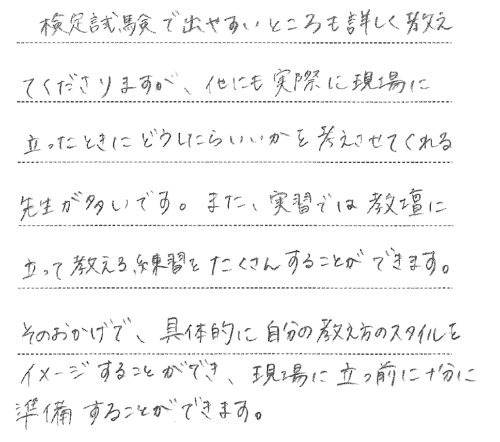 検定試験で出やすいところも詳しく教え
てくださりますが、他にも実際に現場に
立ったときにどうしたらいいかを考えさせてくれる
先生が多いです。また、実習では教壇に
立って教える練習をたくさんすることができます。
そのおかげで、具体的に自分の教え方のスタイルを
イメージすることができ、現場に立つ前に十分に
準備することができます。